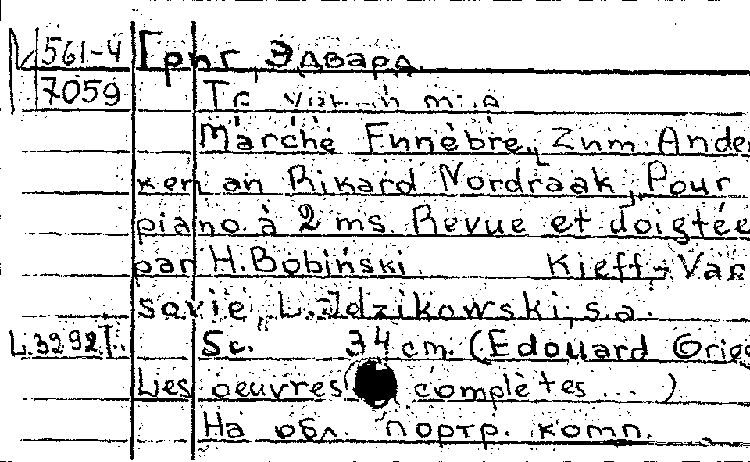 561-4 Григ, Эдвард.
7059
Marche Funèbre, Zum Anden
ken an Rikard Nordraak, Pour
piano à 2 ms. Revue et doigtée
par H. Bobiński. Kieff-Var
sovie, L. Idzikowski, s.a.
L.3292I. 5 c. 34 cm. (Edouard Grieg
Les oeuvres complètes...)
На обл. портр. комп.